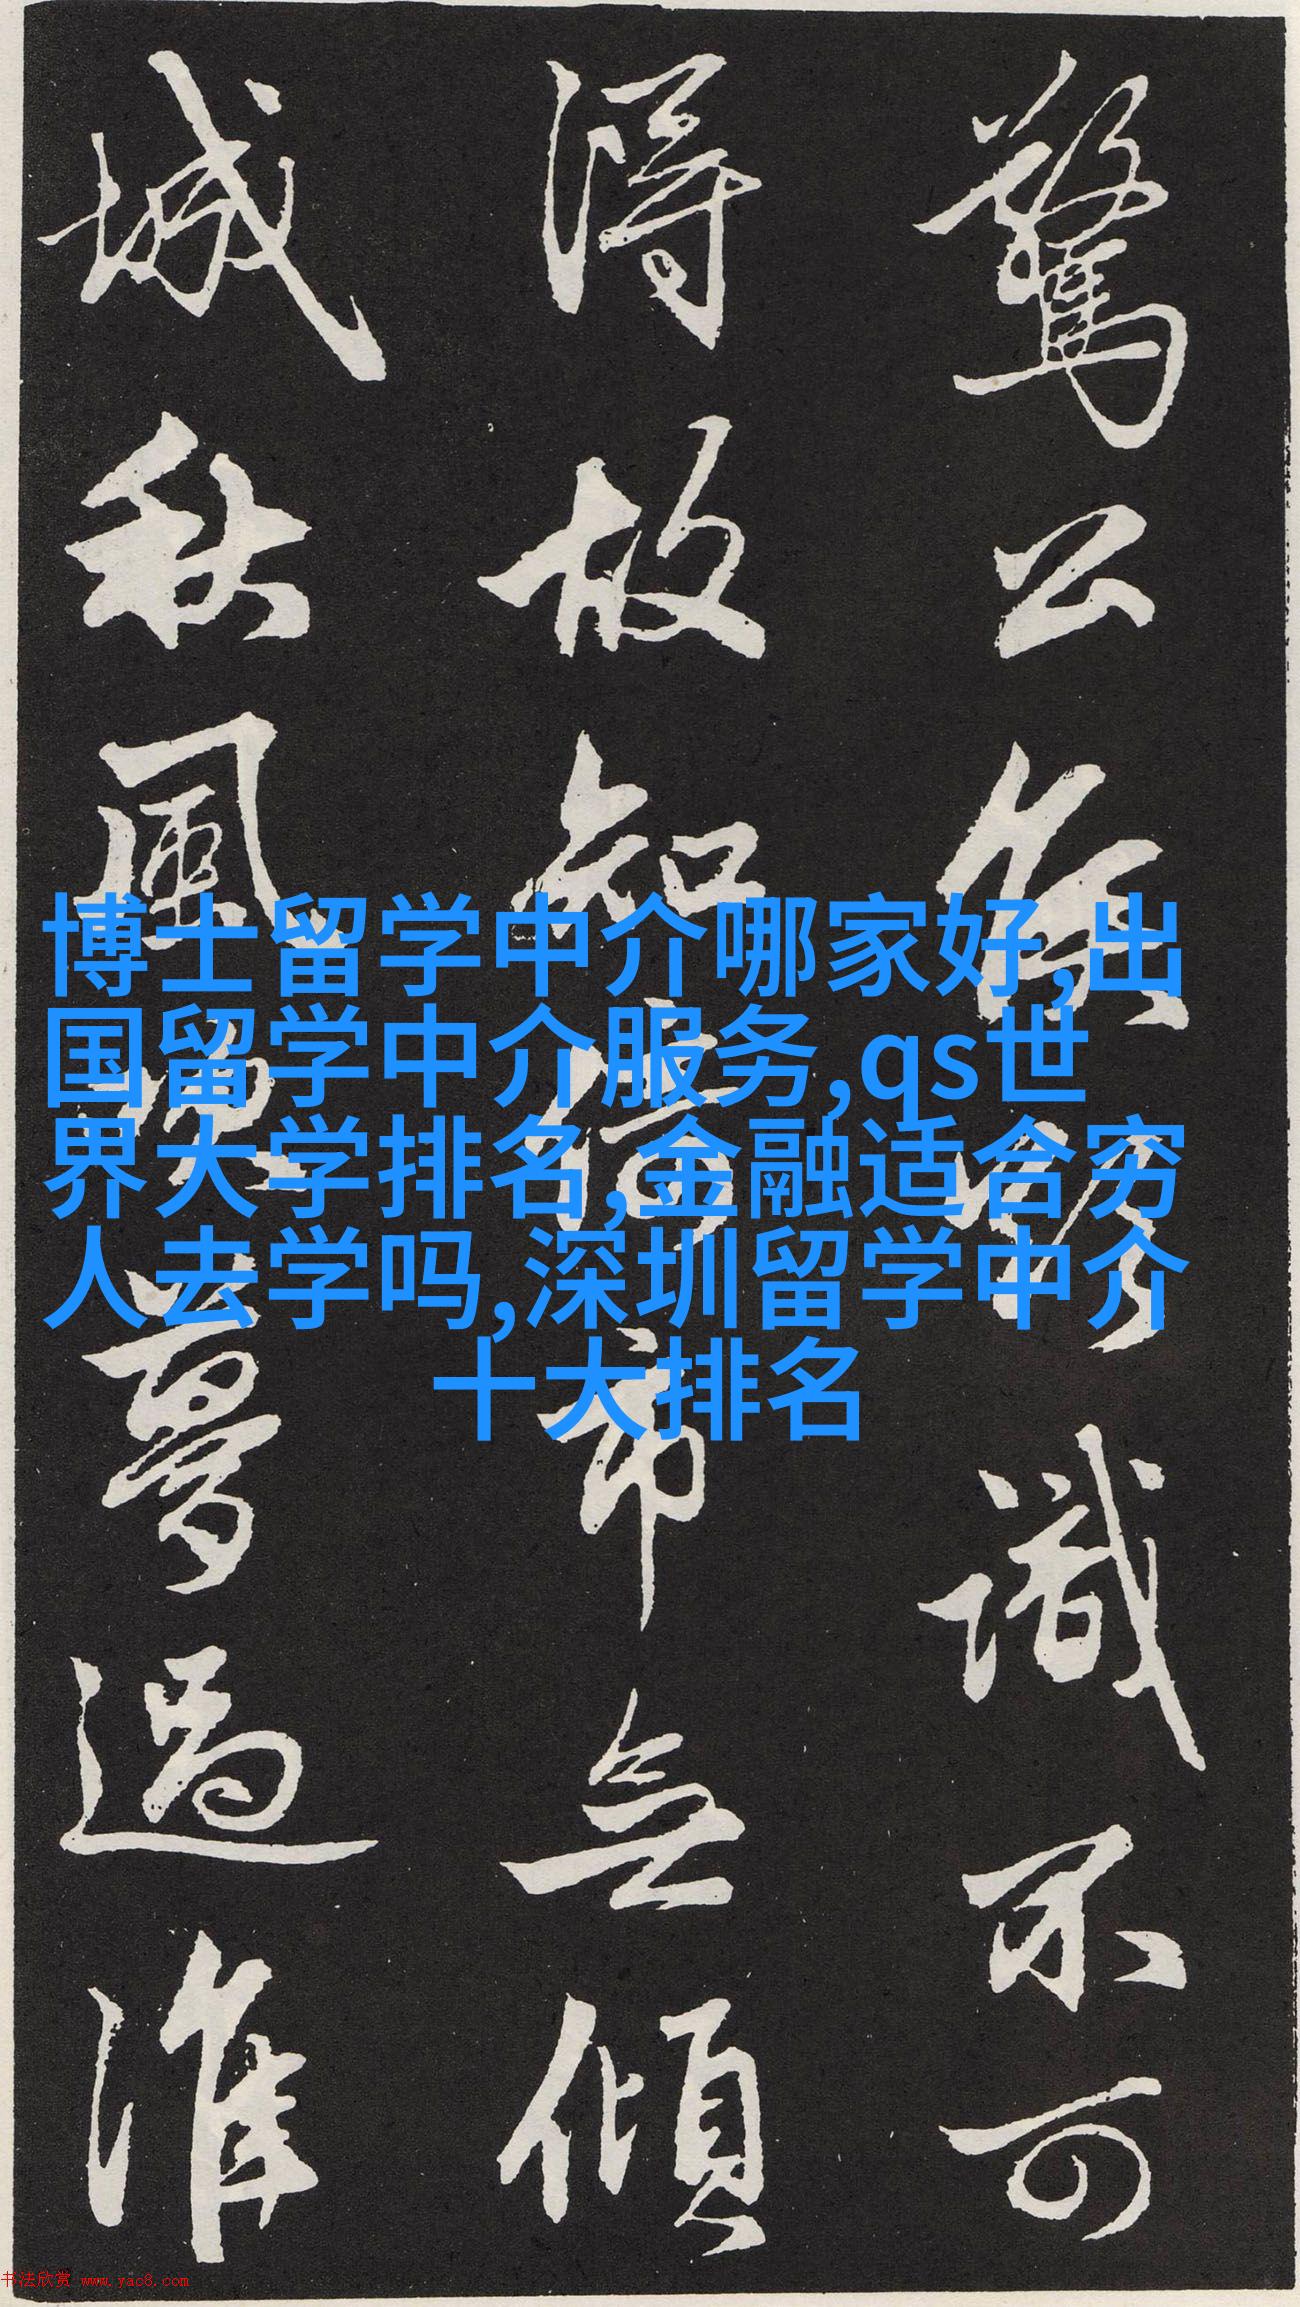 驚公識不可
得故知倚市無傾
城秋風夢過淮
博士留学中介哪家好,出
国留学中介服务,qs世
界大学排名,金融适合穷
人去学吗,深圳留学中介
十大排名
书法欣赏 www.yac8.com